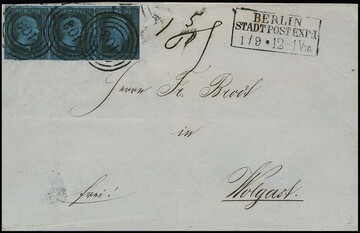 BERLIN
STADTPOST EXP: I
1/9 * 12-1 Vm
Herrn Fr.
in
Wolgast.
frei!